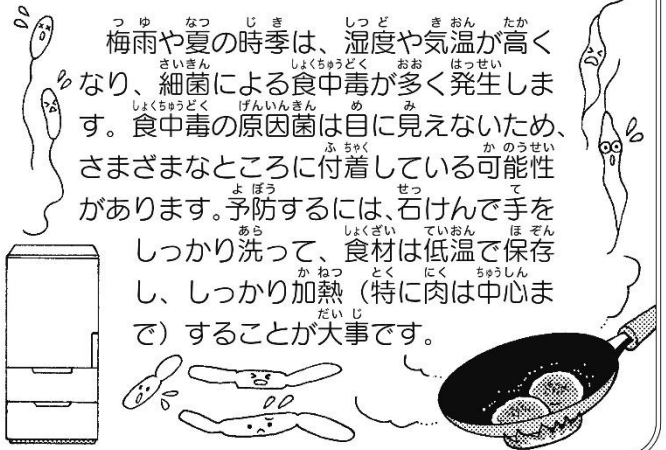 梅雨や夏の時季は、湿度や気温が高く
なり、細菌による食中毒が多く発生しま
す。食中毒の原因菌は目に見えないため、
さまざまなところに付着している可能性
があります。予防するには、石けんで手を
しっかり洗って、食材は低温で保存
し、しっかり加熱（特に肉は中心ま
で）することが大事です。